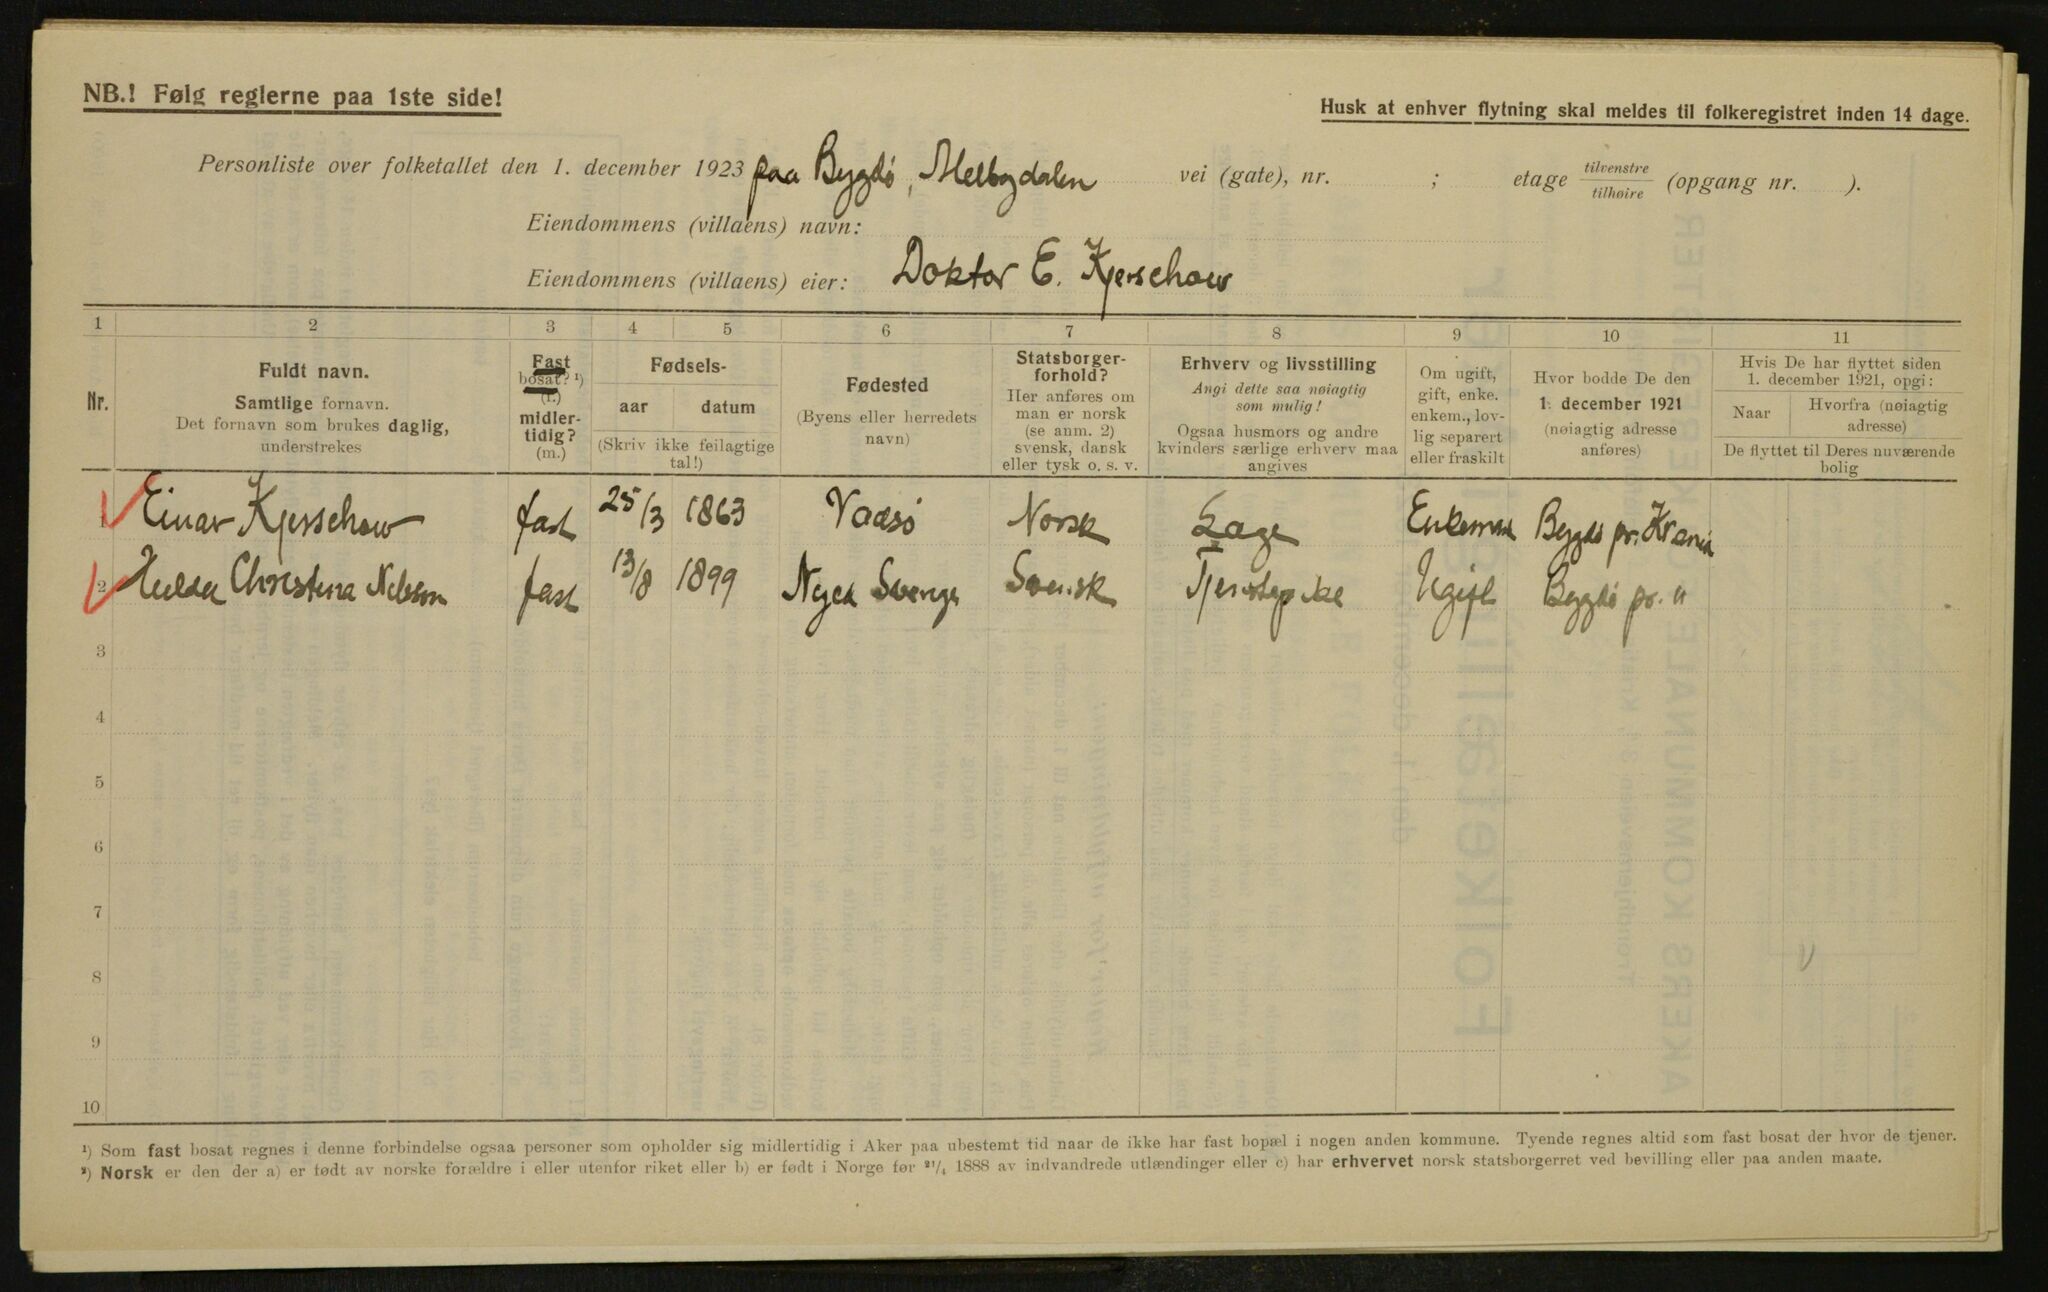 NB.! Følg reglerne paa 1ste side!
Husk at enhver flytning skal meldes til folkeregistret inden 14 dage.
Personliste over folketallet den 1. december 1923 paa Bygdø, Melbydalen vei (gate), nr. ; etage tilvenstre tilhøire (opgang nr. ).
Eiendommens (villaens) navn:
Eiendommens (villaens) eier: Doktor E. Kjerschow
1 2 3 4 5 6 7 8 9 10 11
Nr.
Fuldt navn.
Samtlige fornavn.
Det fornavn som brukes daglig,
understrekes
Fast
bosat? ¹)
(f.)
midler-
tidig?
(m.)
Fødsels-
aar datum
(Skriv ikke feilagtige
tal!)
Fødested
(Byens eller herredets
navn)
Statsborger-
forhold?
Her anføres om
man er norsk
(se anm. 2)
svensk, dansk
eller tysk o. s. v.
Erhverv og livsstilling
Angi dette saa nøiagtig
som mulig!
Ogsaa husmors og andre
kvinders særlige erhverv maa
angives
Om ugift,
gift, enke.
enkem., lov-
lig separert
eller fraskilt
Hvor bodde De den
1. december 1921
(nøiagtig adresse
anføres)
Hvis De har flyttet siden
1. december 1921, opgi:
Naar Hvorfra (nøiagtig
adresse)
De flyttet til Deres nuværende
bolig
1 Einar Kjerschow fast 25/3 1863 Vadsø Norsk Læge Enkemand Bygdø pr. Krania
2 Christina Nilsson fast 13/8 1899 Sverige Svensk Tjenestepike Ugift Bygdø pr. "
3
4
5
6
7
8
9
10
¹) Som fast bosat regnes i denne forbindelse ogsaa personer som opholder sig midlertidig i Aker paa ubestemt tid naar de ikke har fast bopæl i nogen anden kommune. Tyende regnes altid som fast bosat der hvor de tjener.
²) Norsk er den der a) er født av norske forældre i eller utenfor riket eller b) er født i Norge før ²¹/₄ 1888 av indvandrede utlændinger eller c) har erhvervet norsk statsborgerret ved bevilling eller paa anden maate.